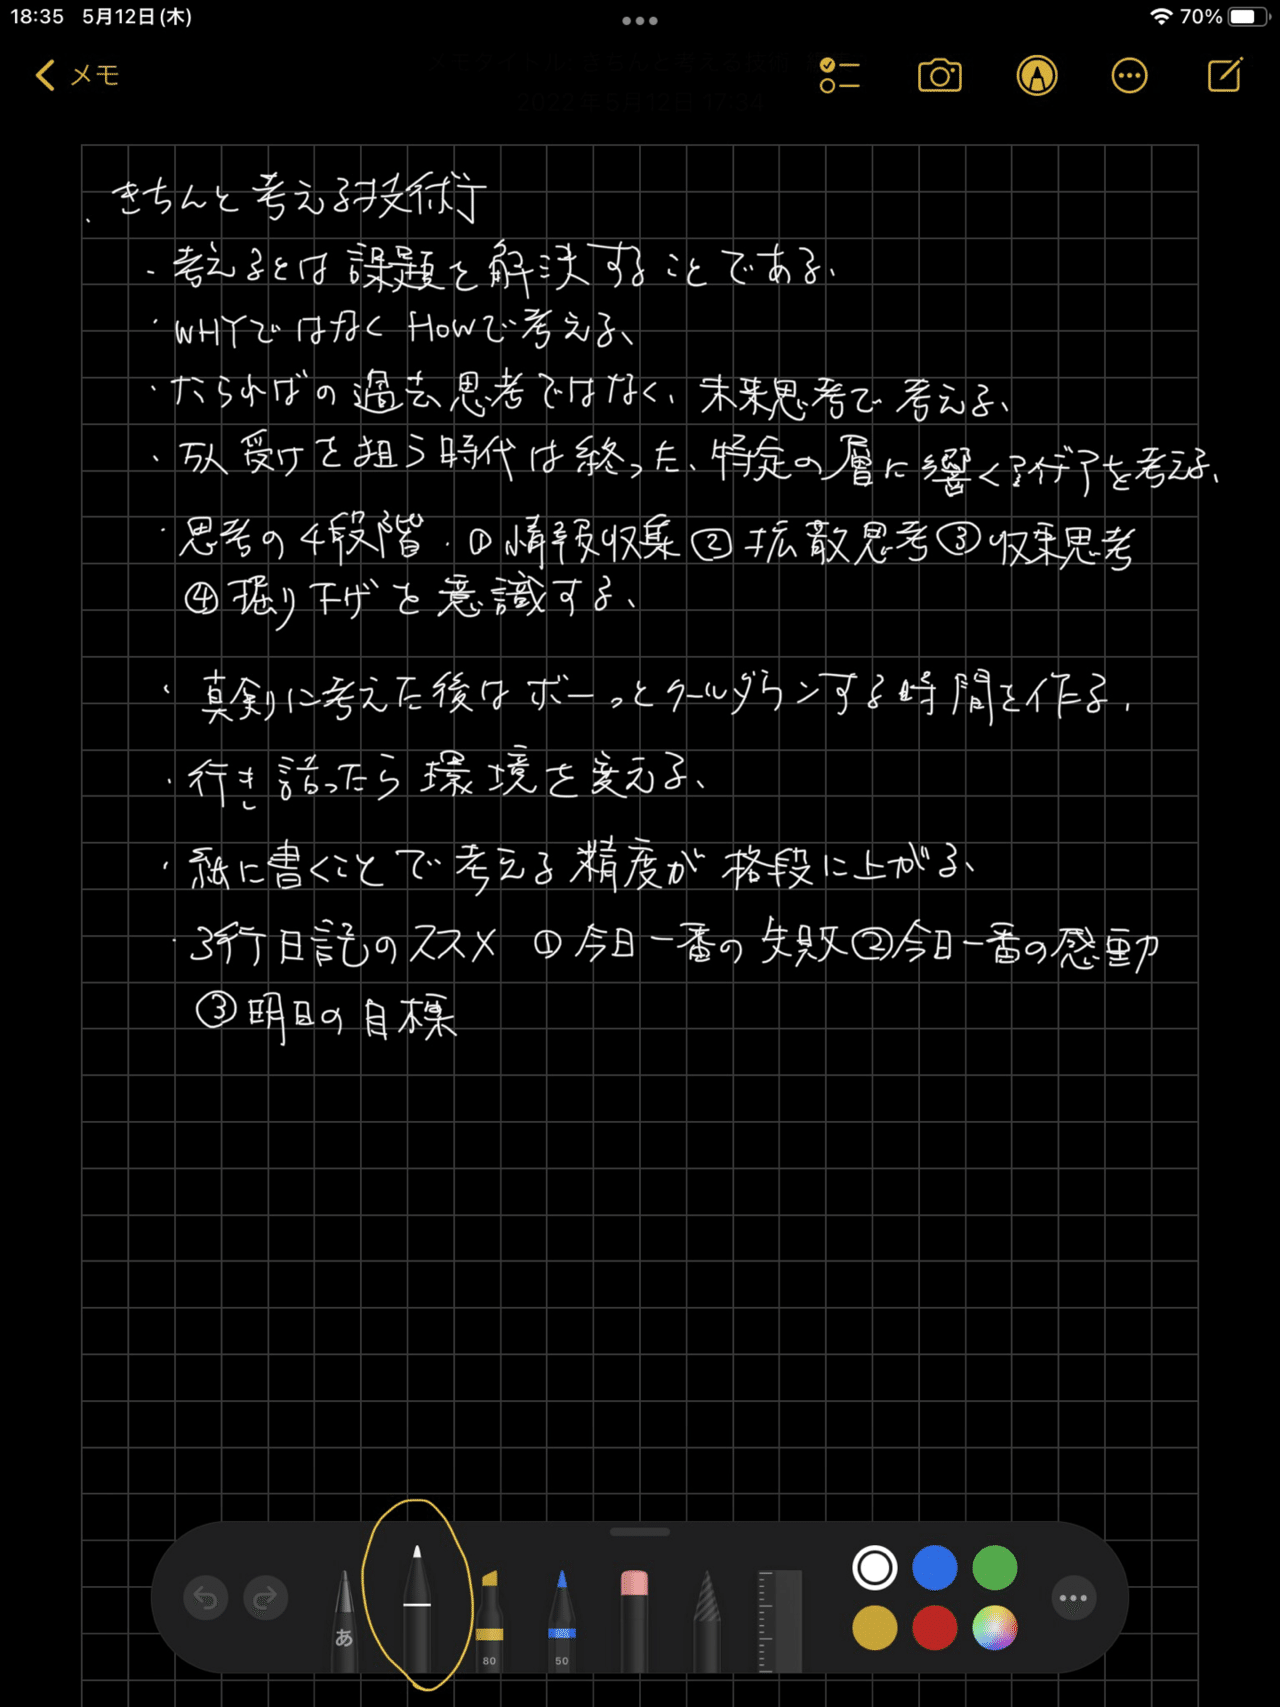 18:35 5月12日(木)
70%
メモ
2022年5月12日 17:34
きちんと考える技術
・考えるとは課題を解決することである、
・WHYではなくHowで考える、
・たらればの過去思考ではなく、未来思考で考える、
・万人受けを狙う時代は終った、特定の層に響くアイデアを考える、
・思考の4段階・①情報収集②拡散思考③収束思考
④掘り下げを意識する、
・真剣に考えた後はボーっとクールダウンする時間を作る、
・行き詰ったら環境を変える、
・紙に書くことで考える精度が格段に上がる、
・3行日記のススメ ①今日一番の失敗②今日一番の感動
③明日の目標
あ
80
50